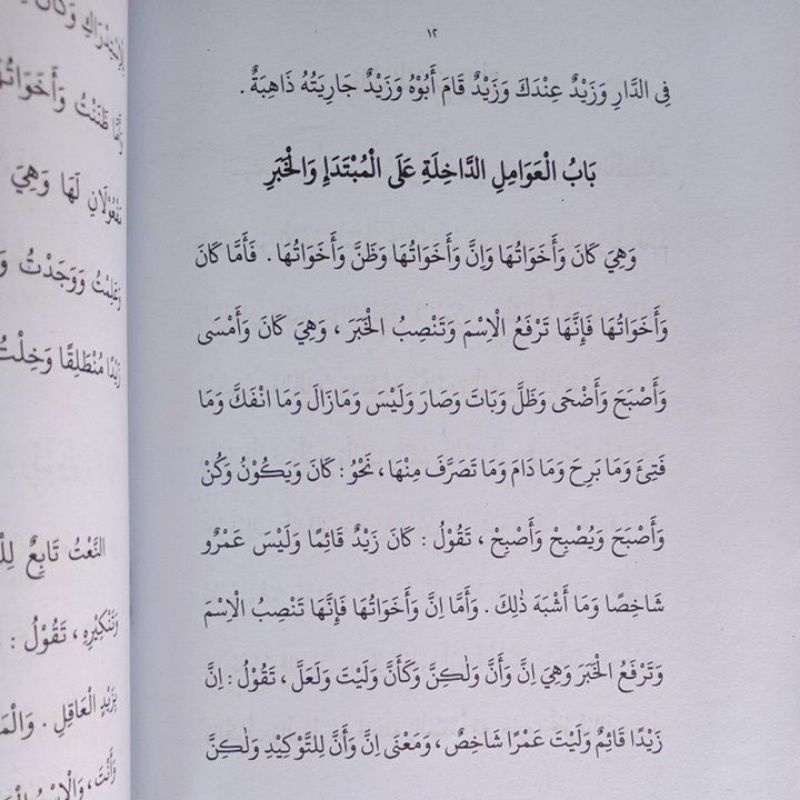 ١٢
فِي الدَّارِ وَزَيْدٌ عِنْدَكَ وَزَيْدٌ قَامَ أَبُوْهُ وَزَيْدٌ جَارِيَتُهُ ذَاهِبَةٌ .
بَابُ الْعَوَامِلِ الدَّاخِلَةِ عَلَى الْمُبْتَدَإِ وَالْخَبَرِ
وَهِيَ كَانَ وَأَخَوَاتُهَا وَإِنَّ وَأَخَوَاتُهَا وَظَنَّ وَأَخَوَاتُهَا . فَأَمَّا كَانَ
وَأَخَوَاتُهَا فَإِنَّهَا تَرْفَعُ الْاِسْمَ وَتَنْصِبُ الْخَبَرَ ، وَهِيَ كَانَ وَأَمْسَى
وَأَصْبَحَ وَأَضْحَى وَظَلَّ وَبَاتَ وَصَارَ وَلَيْسَ وَمَازَالَ وَمَا انْفَكَّ وَمَا
فَتِئَ وَمَا بَرِحَ وَمَا دَامَ وَمَا تَصَرَّفَ مِنْهَا، نَحْوُ : كَانَ وَيَكُوْنُ وَكُنْ
وَأَصْبَحَ وَيُصْبِحُ وَأَصْبِحْ ، تَقُوْلُ : كَانَ زَيْدٌ قَائِمًا وَلَيْسَ عَمْرٌو
شَاخِصًا وَمَا أَشْبَهَ ذٰلِكَ . وَأَمَّا إِنَّ وَأَخَوَاتُهَا فَإِنَّهَا تَنْصِبُ الْاِسْمَ
وَتَرْفَعُ الْخَبَرَ وَهِيَ إِنَّ وَأَنَّ وَلٰكِنَّ وَكَأَنَّ وَلَيْتَ وَلَعَلَّ ، تَقُوْلُ : إِنَّ
زَيْدًا قَائِمٌ وَلَيْتَ عَمْرًا شَاخِصٌ ، وَمَعْنَى إِنَّ وَأَنَّ لِلتَّوْكِيْدِ وَلٰكِنَّ
لِلْاِسْتِدْرَاكِ وَكَأَنَّ
وَأَمَّا ظَنَنْتُ وَأَخَوَاتُهَا
مَفْعُوْلَانِ لَهَا وَهِيَ
وَعَلِمْتُ وَوَجَدْتُ
زَيْدًا مُنْطَلِقًا وَخِلْتُ
النَّعْتُ تَابِعٌ
وَتَنْكِيْرِهِ ، تَقُوْلُ :
بِزَيْدٍ الْعَاقِلِ .
وَأَنْتَ،